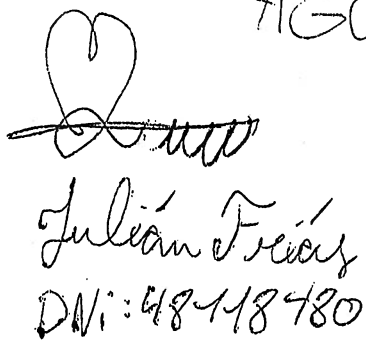 AGO
Julián Frías
DNi: 48118480